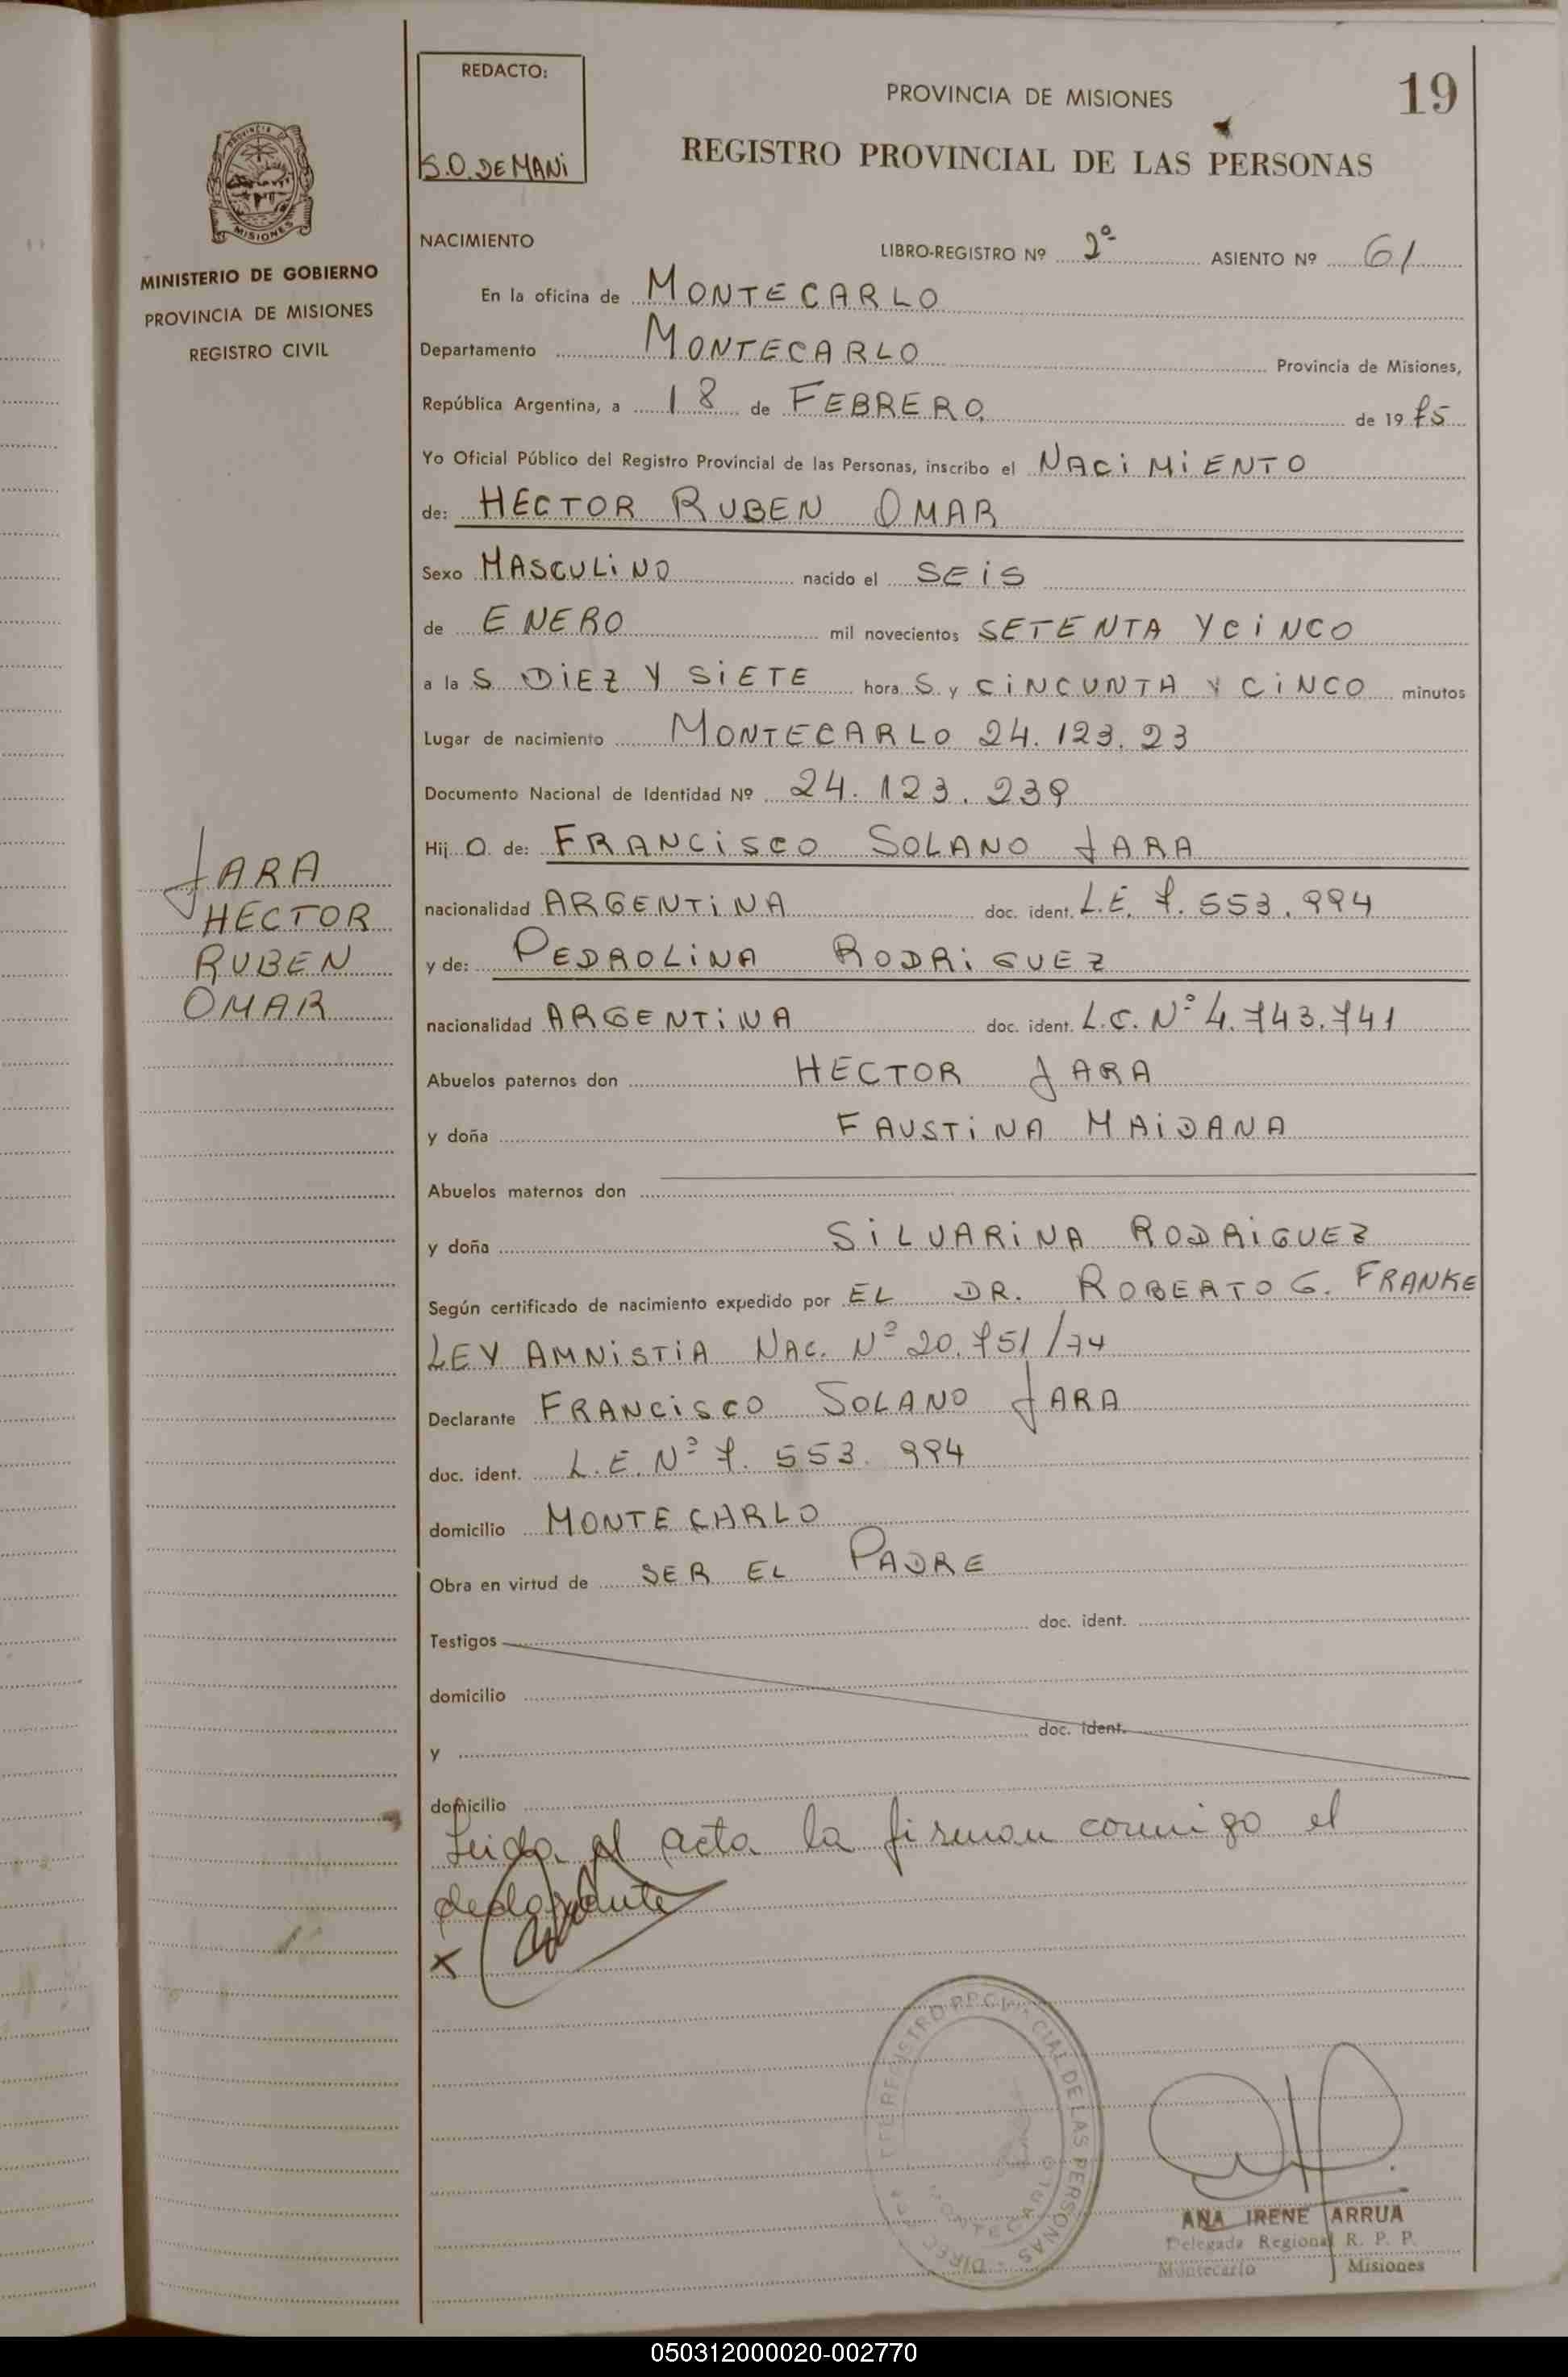 REDACTO:
S.O. DEMANi
PROVINCIA DE MISIONES
19
REGISTRO PROVINCIAL DE LAS PERSONAS
PROVINCIA DE
MISIONES
MINISTERIO DE GOBIERNO
PROVINCIA DE MISIONES
REGISTRO CIVIL
NACIMIENTO
LIBRO-REGISTRO Nº 2º ASIENTO Nº 61
En la oficina de MONTECARLO
Departamento MONTECARLO Provincia de Misiones,
República Argentina, a 18 de FEBRERO. de 1975
Yo Oficial Público del Registro Provincial de las Personas, inscribo el NACiMiENTO
de: HECTOR RUBEN OMAR
Sexo MASCULiNO nacido el SEiS
de ENERO mil novecientos SETENTA Y CiNCO
a la S DiEZ Y SiETE hora S y CiNCUNTA Y CiNCO minutos
Lugar de nacimiento MONTECARLO 24.123.23
Documento Nacional de Identidad Nº 24.123.239
Hij O de: FRANCiSCO SOLANO JARA
nacionalidad ARGENTiNA doc. ident. L.E. 7.553.994
y de: PEDROLiNA RODRiGUEZ
nacionalidad ARGENTiNA doc. ident. L.C. Nº 4.743.741
Abuelos paternos don HECTOR JARA
y doña FAUSTiNA MAiDANA
Abuelos maternos don
y doña SiLVARiNA RODRiGUEZ
Según certificado de nacimiento expedido por EL DR. ROBERTO G. FRANKE
LEY AMNiSTiA NAC. Nº 20.751/74
Declarante FRANCiSCO SOLANO JARA
doc. ident. L.E. Nº 7.553.994
domicilio MONTECARLO
Obra en virtud de SER EL PADRE
Testigos doc. ident.
domicilio
y doc. ident.
domicilio
Leida el acta la firman conmigo el
declarante
X
JARA
HECTOR
RUBEN
OMAR
REGISTRO PROVINCIAL DE LAS PERSONAS
MONTECARLO
ANA IRENE ARRUA
Delegada Regional R. P. P.
Montecarlo Misiones
050312000020-002770